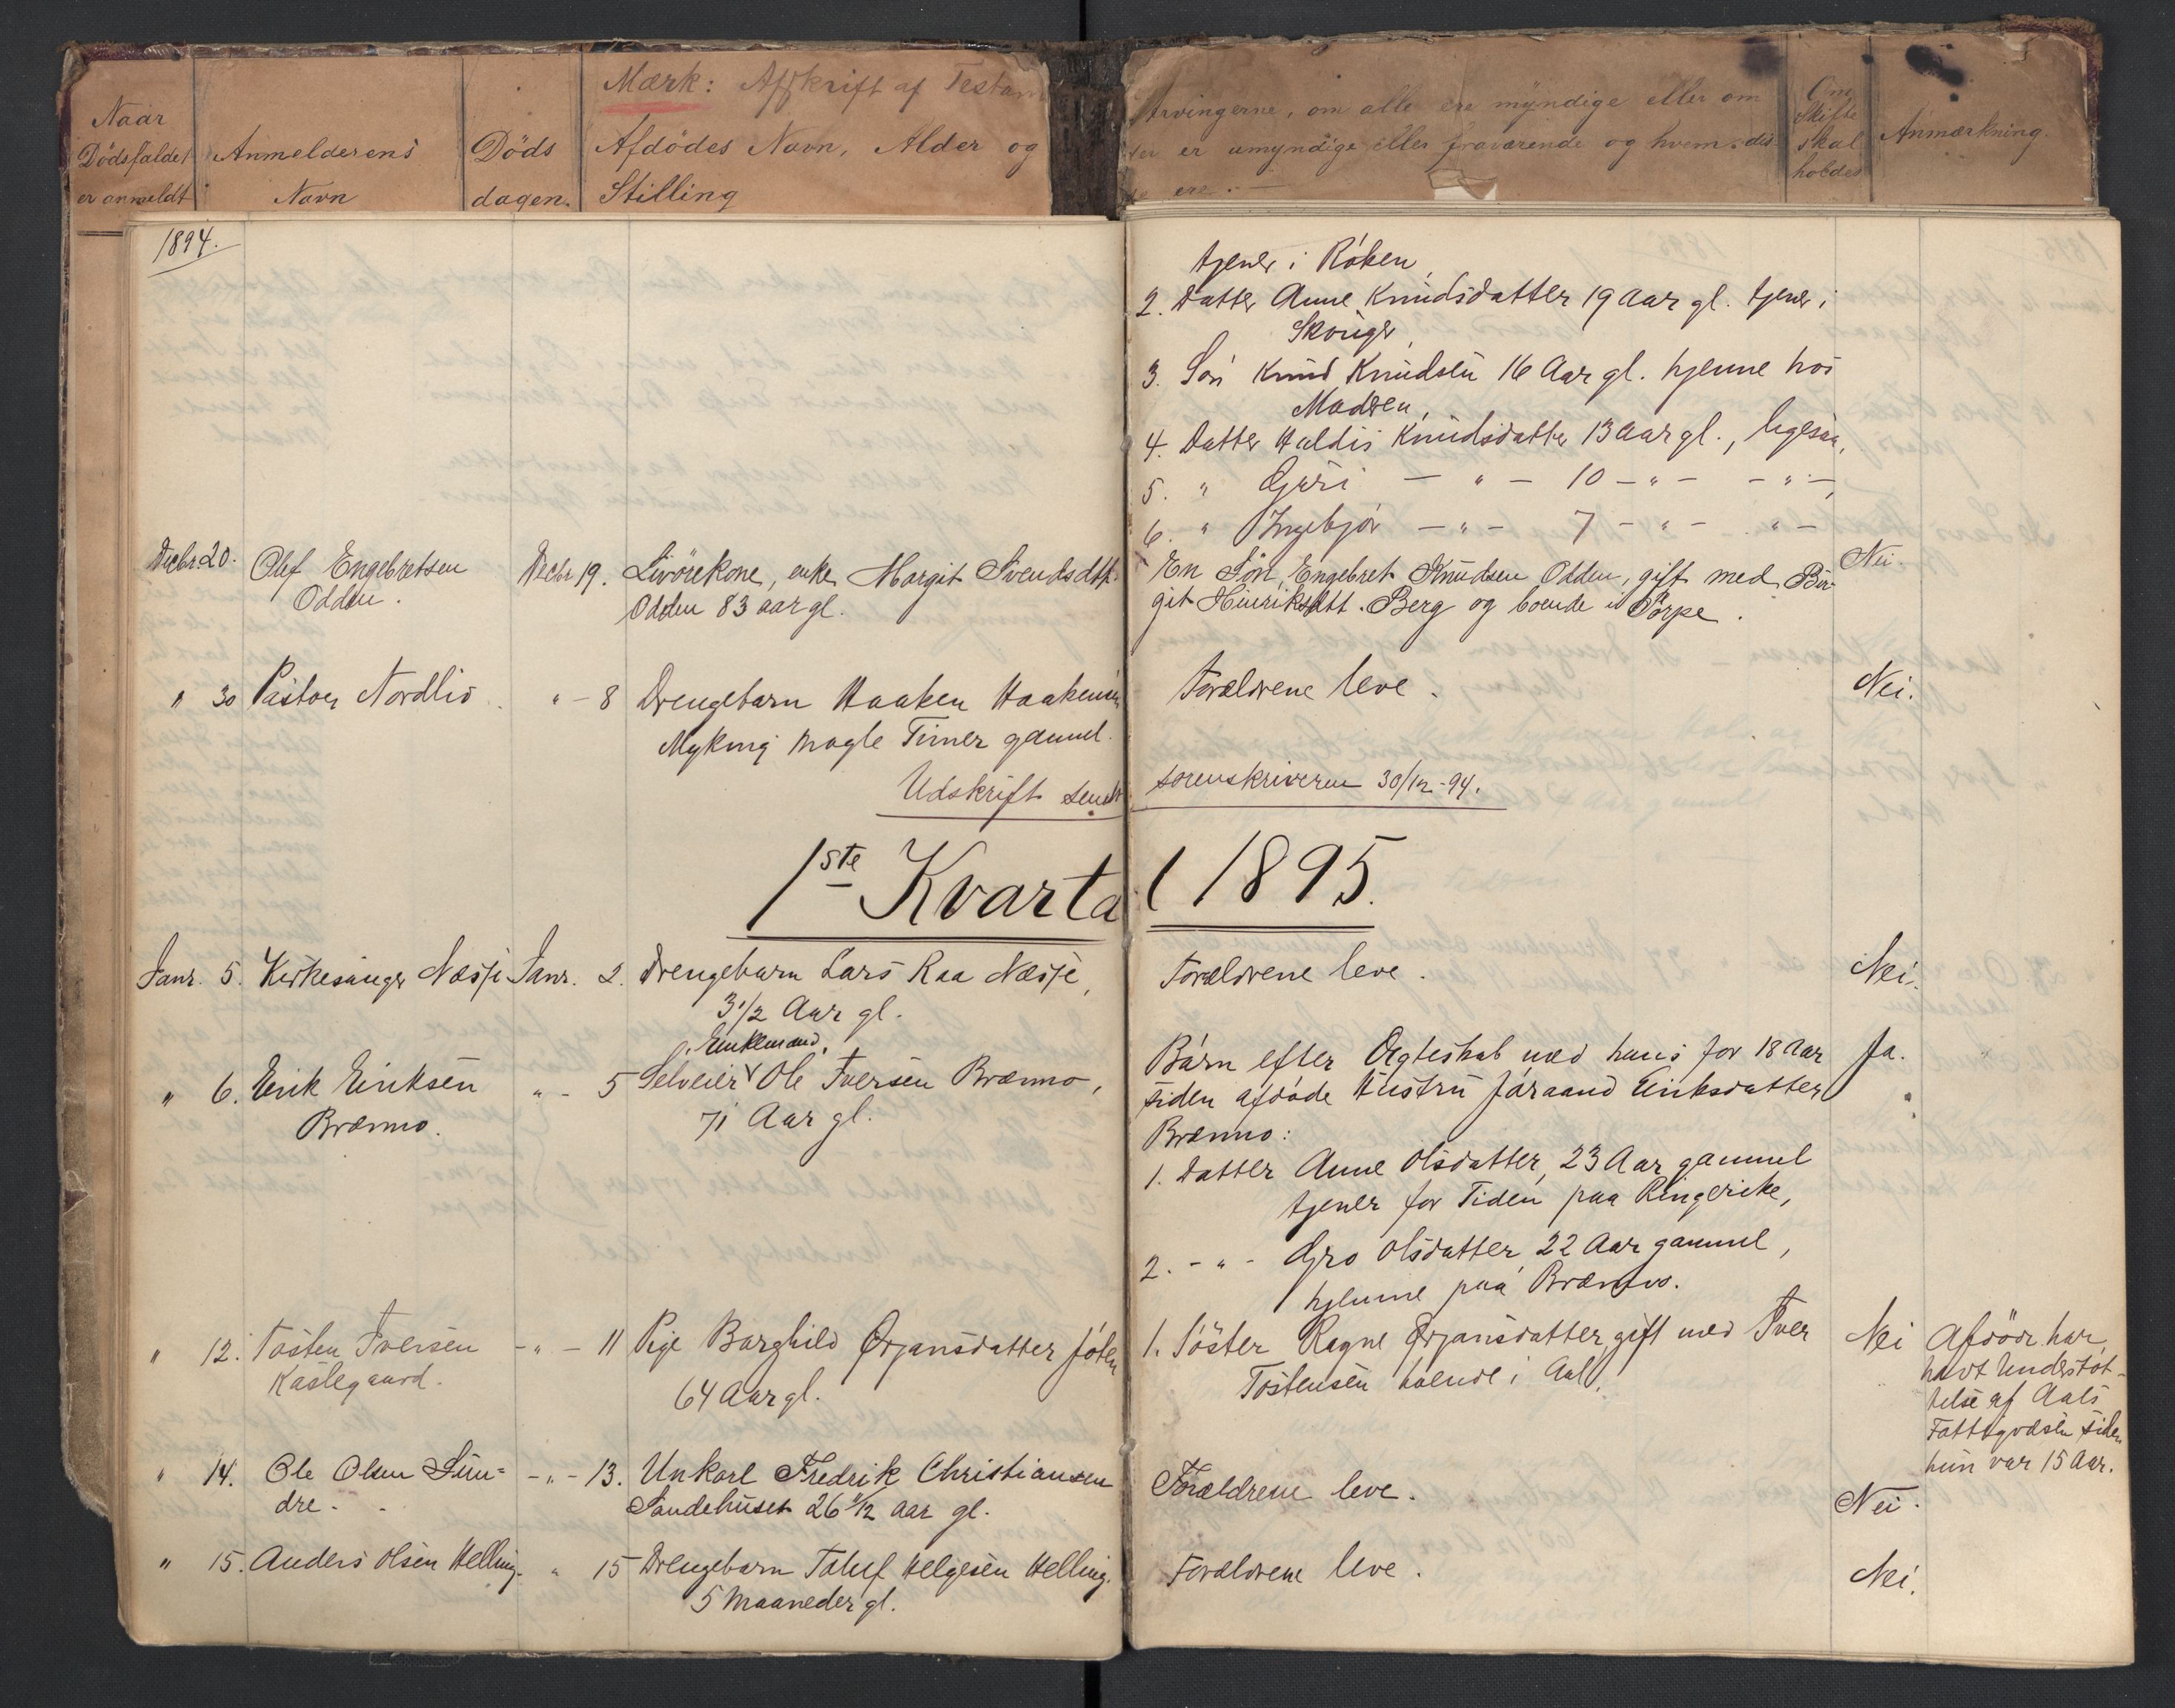 Mærk: Afskrift af Testam
Naar
Dødsfaldet
er anmeldt
Anmelderens
Navn
Døds
dagen.
Afdødes Navn, Alder og
Stilling
Arvingerne, om alle ere myndige eller om
er umyndige eller fraværende og hvem dis
ere. —
Om
Skifte
skal
holdes
Anmærkning.
1894.
tjener i Røken,
2. Datter Anne Knudsdatter 19 Aar gl. tjener i
Skouger,
3. Søn Knud Knudsen 16 Aar gl. hjemme hos
Modren,
4. Datter Haldis Knudsdatter 13 Aar gl., ligesaa,
5. " Gjøri — " — 10 — " — — " —,
6. " Ingebjør — " — 7 — " — " —
Decbr. 20. Olef Engebretsen
Odden.
Decbr 19. Livørekone, enke Margit Svendsdtt.
Odden 83 aar gl.
En Søn, Engebret Knudsen Odden, gift med Bir-
git Hinriksdtt. Berg og boende i Torpe.
Nei.
" 30 Pastor Nordlid
" - 8 Drengebarn Haaken Haakensen
Myking nogle Timer gammel.
Forældrene leve.
Nei.
Udskrift sendt sorenskriveren 30/12-94.
1ste Kvartal 1895.
Janr. 5. Kirkesanger Næsje Janr. 2. Drengebarn Lars Raa Næsje,
3 1/2 Aar gl.
Forældrene leve.
Nei.
" 6. Eirik Eiriksen
Brænno.
Enkemand,
" - 5 Selveier Ole Iversen Brænno,
71 Aar gl.
Børn efter Ægteskab med hans for 18 Aar
siden afdøde Hustru Jøraand Eiriksdatter
Brænno:
1. Datter Anne Olsdatter, 23 Aar gammel
tjener for Tiden paa Ringerike,
2. - " - Gro Olsdatter, 22 Aar gammel,
hjemme paa Brænno.
Ja.
" 12. Tosten Iversen
Kaslegaard.
- " - 11 Pige Barghild Ørjansdatter Jøten
64 Aar gl.
1. Søster Ragne Ørjansdatter, gift med Iver
Tostensen boende i Aal.
Nei
Afdøde har
havt Understøt-
telse af Aals
Fattigvæsen siden
hun var 15 Aar.
" 14. Ole Olsen Sun=
dre.
- " - 13. Unkarl Fredrik Christiansen
Sandehuset 26 /12 aar gl.
Forældrene leve.
Nei.
" 15. Anders Olsen Helling. " 15 Drengebarn Toluf Helgesen Helling.
5 Maaneder gl.
Forældrene leve.
Nei.